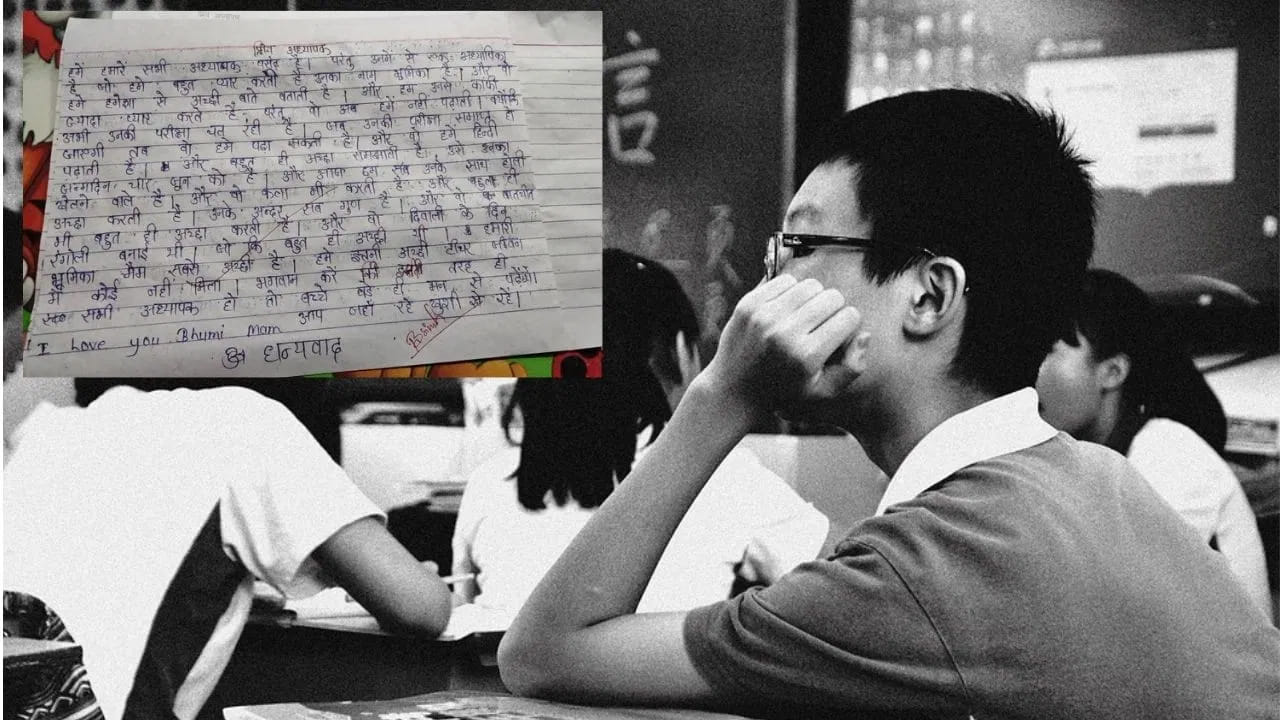 प्रिय अध्यापक
हमें हमारें सभी अध्यापक पसंद है। परंतु उनमें से एक अध्यापिका
है जो हमे बहुत प्यार करती है उनका नाम भुमिका है। और वो
हमे हमेशा से अच्छी बाते बताती है। और हम उनसे काफी
ज्यादा प्यार करते है परंतु वो अब हमें नहीं पढ़ाती। क्योंकि
अभी उनकी परीक्षा चल रही है। जब उनकी परीक्षा समाप्त हो
जाएगी तब वो हमे पढा सकती है। और वो हमे हिन्दी
पढ़ाती है। और बहुत ही अच्छा समझाती है। उसे इनका
जन्मदिन चार जून को है। और आज हम सब उनके साथ होली
खेलने वाले है। और वो कला भी करती है और बहुत ही
अच्छा करती है। उनके अन्दर सब गुण है। और वो बातचीत
भी बहुत ही अच्छा करती है। और वो दिवाली के दिन
रंगोली बनाई थी। जो कि बहुत ही अच्छी थी। हमारी
भुमिका मैम सबसे अच्छी है। हमे इतना अच्छी टीचर जीवन
में कोई नहीं मिला। भगवान करें की इसी तरह ही
सभी अध्यापक हो तो बच्चे बड़े ही मन से पढ़ेंगे।
आप जहाँ रहे खुशी से रहें।
I Love you Bhumi Mam
धन्यवाद
言